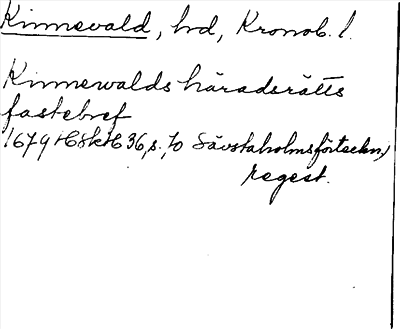 Kinnevald, hd, Kronob. l.
Kinnewalds häradsrätts
fastebref
1679 HSkH 36, s. 70 Sävstaholmsförteckn.,
regest.